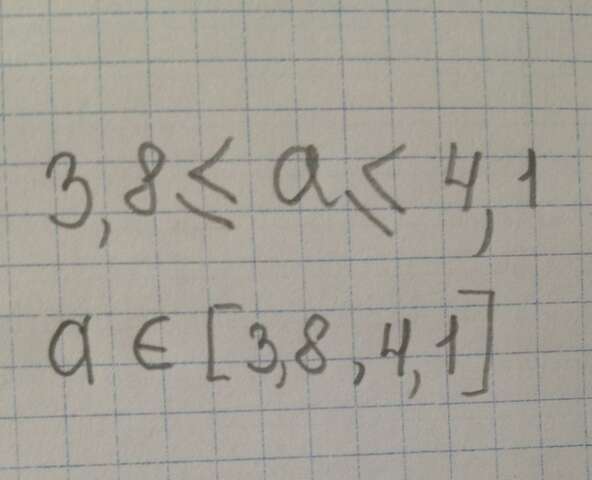 3,8 ≤ a ≤ 4,1
a ∈ [3,8 , 4,1]